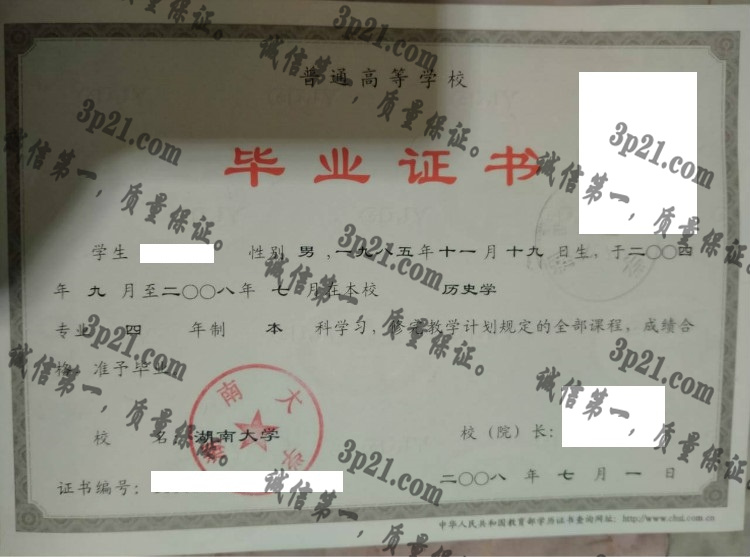 普通高等学校
毕业证书
学生 性别 男 ,一九八五年十一月十九日生, 于二〇〇四
年 九 月至二〇〇八年 七 月在本校 历史学
专业 四 年制 本 科学习, 修完教学计划规定的全部课程, 成绩合
格, 准予毕业
校 名: 湖南大学
校(院)长:
证书编号:
二〇〇八 年 七 月 一 日
中华人民共和国教育部学历证书查询网址: http://www.chsi.com.cn
湖南大学
3p21.com
诚信第一,质量保证。
3p21.com
诚信第一,质量保证。
3p21.com
诚信第一,质量保证。
3p21.com
诚信第一,质量保证。
3p21.com
诚信第一,质量保证。
3p21.com
诚信第一,质量保证。
3p21.com
诚信第一,质量保证。